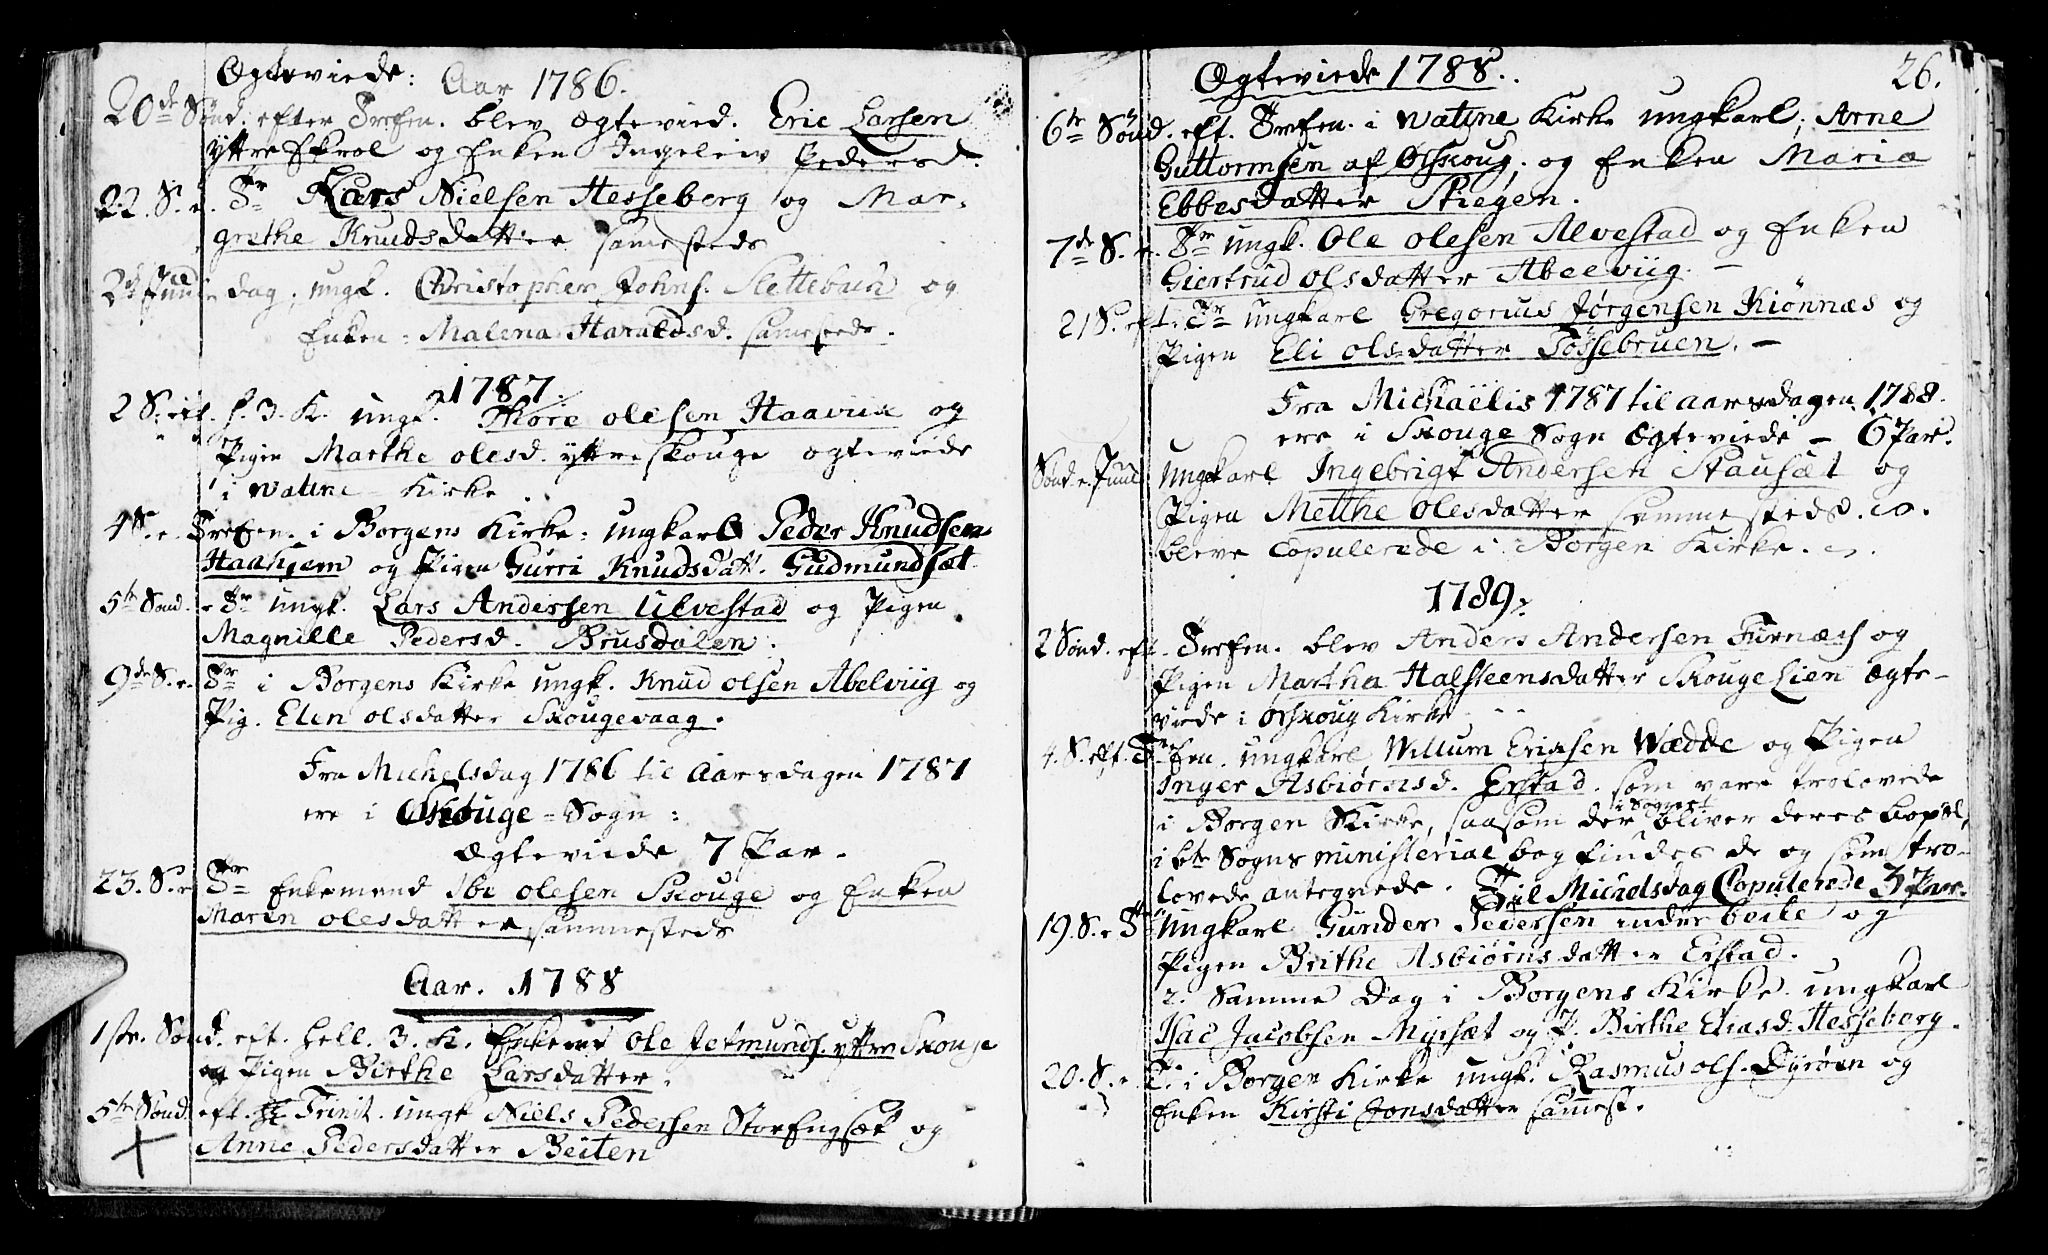 Ægteviede: Aar 1786.
20de Sønd. efter Trefen. blev ægtevied. Eric Larsen
yttre Skrol og Enken Ingeleiv Pedersd.
22. S. e. Tr Lars Nielsen Hesseberg og Mar-
grethe Knudsdatter sammesteds
2den Juledag, ungk. Christopher Johns. Slettebach og
Enken = Malena Haraldsd. sammesteds.
1787.
2 S. eft. h. 3. K. ungk. Thore olesen Haavik og
Pigen Marthe olesd. yttre skouge ægteviede
i Watne Kirke
4 S. e. Trefen. i Borgens Kirke: ungkarl Peder Knudsen
Haahjem og Pigen Gurri Knudsdatt. Gudmundsæt
5te Sønd. e Tr ungk. Lars Andersen Ulvestad og Pigen
Magnille Pedersd. Brusdalen.
9de S. e. Tr i Borgens Kirke ungk. Knud olsen Abelviig og
Pig. Elen olsdatter Skougevaag.
Fra Michelsdag 1786 til Aarsdagen 1787
ere i Skouge = Sogn:
Ægteviede 7 Par.
23. S. e Tr Enkemand Ibr olesen Skouge og Enken
Maren olesdatter sammesteds
Aar. 1788
1ste. Sønd. eft. hell. 3. K. Enkem. Ole Jetmunds. yttre Skouge
og Pigen Birthe Larsdatter.
5te Sønd. eft. Trinit. ungk Niels Pedersen Storengsæt og
Anne Pedersdatter Beiten
Ægteviede 1788.. 26.
6te Sønd. eft. Trefen. i Watne Kirke ungkarl, Arne
Guttormsen af Ørskoug, og Enken Maria
Ebbesdatter Stiegen.
7de S. e. Tr ungk. Ole olesen Alvestad og Enken
Giertrud olsdatter Abelviig. –
21 S. eft. Tr ungkarl Gregorius Jørgensen Kiønnæs og
Pigen Eli olsdatter Fossebruen. –
Fra Michaëlis 1787 til aarsdagen 1788.
ere i Skouge Sogn Ægteviede – 6 Par.
Sønd. e. Juul ungkarl Ingebrigt Andersen Stausæt og
Pigen Metthe olesdatter sammesteds.
bleve Copulerede i Borgen Kirke.
1789.
2 Sønd. eft. Trefen. blev Anders Andersen Furnæs og
Pigen Martha Halsteensdatter Skouge Lien Ægte-
viede i Ørskoug Kirke
4. S. eft. Trefen. ungkarl Willum Erichsen Wædde og Pigen
Inger Asbiørnsd. Erstad. som vare trolovede
i Sognet
i Borgen Kirke, saasom der bliver deres bopæl,
i bte Sogns ministerial bog findes de og som tro-
lovede antegnede. Til Michelsdag Copulerede 3 Par.
19. S. e Tr ungkarl Gunder Pedersen indre beite og
Pigen Brithe Asbiørnsdatter Erstad.
2. Samme Dag i Borgens Kirke ungkarl
Isac Jacobsen Myrsæt og P. Birthe Eliasd. Hesseberg.
20. S. e. T. i Borgen Kirke ungk. Rasmus ols. Dyrøen og
Enken Kirsti Jonsdatter sammest.